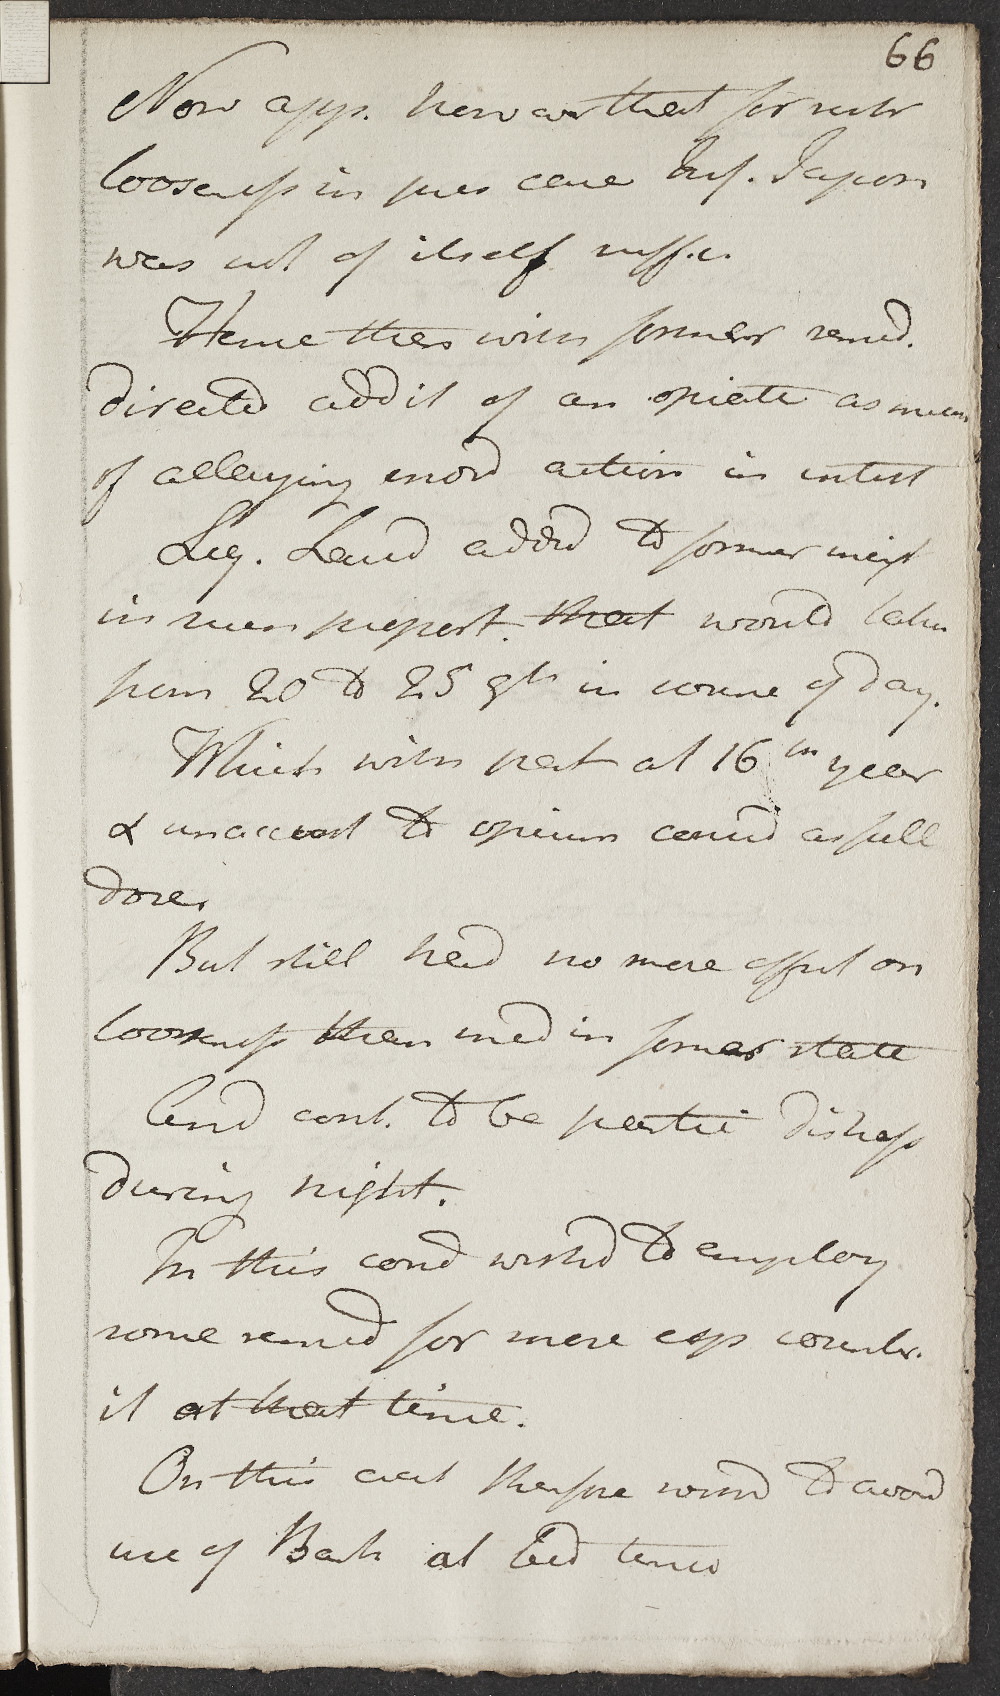 66
Now app. however that for such
looseness in pres case Inf. Japon
was not of itself suffic.
Hence then with former remed.
directed addit of an opiate as mean
of allaying inord action in intest
Liq. Laud added to former mixt
in such proport. that would take
from 20 to 25 gtt in course of day.
Which with patt at 16th year
& unaccust to opium consid as full
dose.
But still had no more effect on
looseness than med in former state
And cont. to be partic distress
during night.
In this cond wished to employ
some remed for more esp counter.
it at that time.
On this acct therefore wishd to avoid
use of Bark at bed time